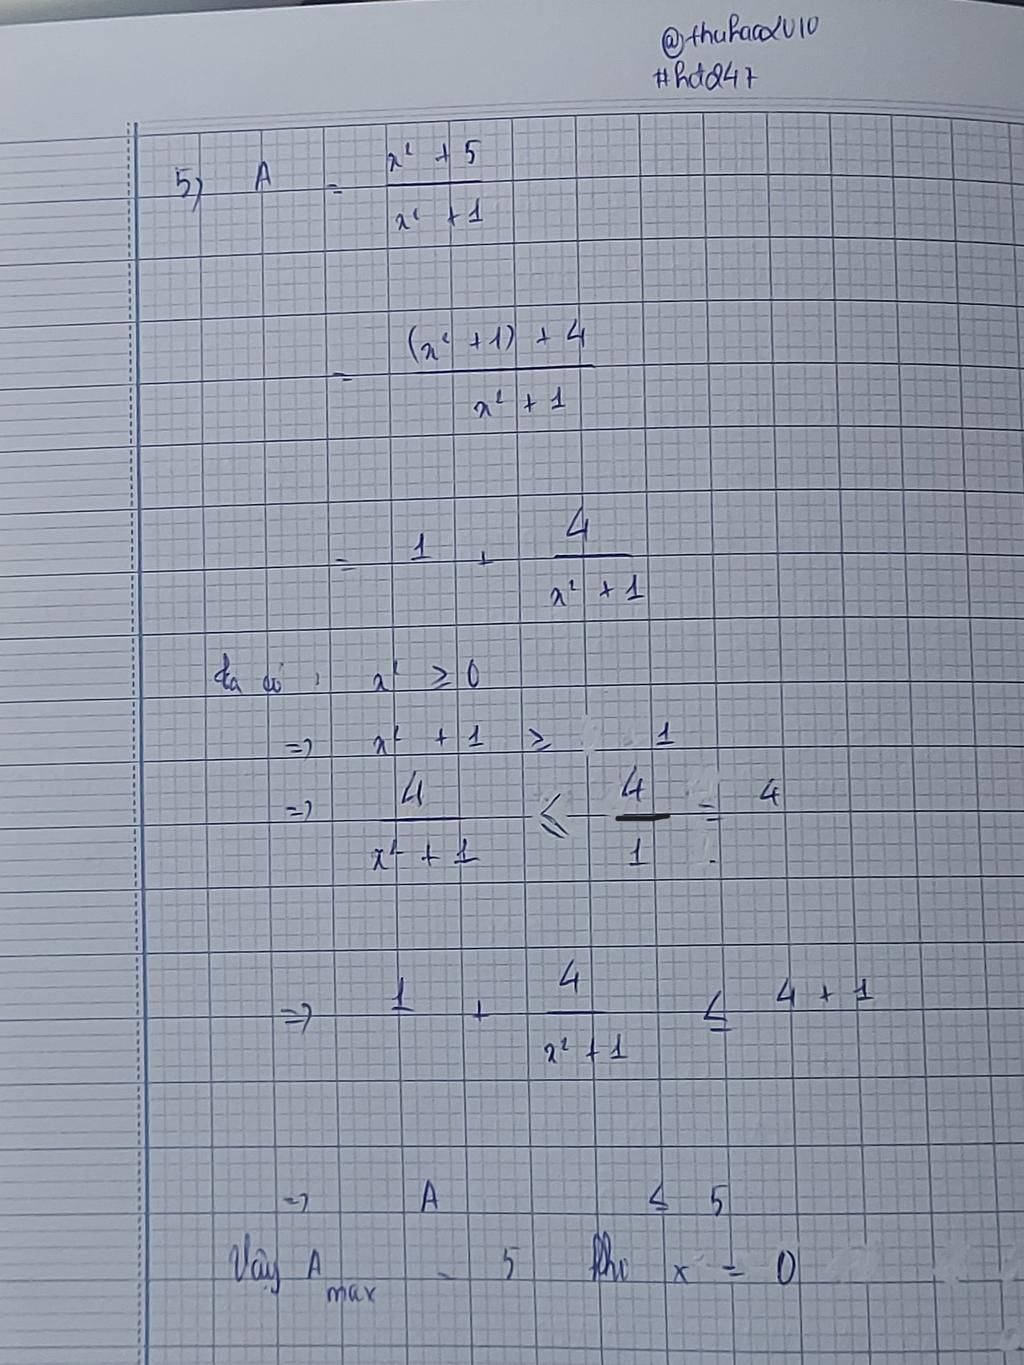 @thuhaod2010
#htd247
5) A = x² + 5 / x² + 1
= (x² + 1) + 4 / x² + 1
= 1 + 4 / x² + 1
ta có : x² ≥ 0
=> x² + 1 ≥ 1
=> 4 / x² + 1 ≤ 4 / 1 = 4
=> 1 + 4 / x² + 1 ≤ 4 + 1
=> A ≤ 5
Vậy A max = 5 khi x = 0